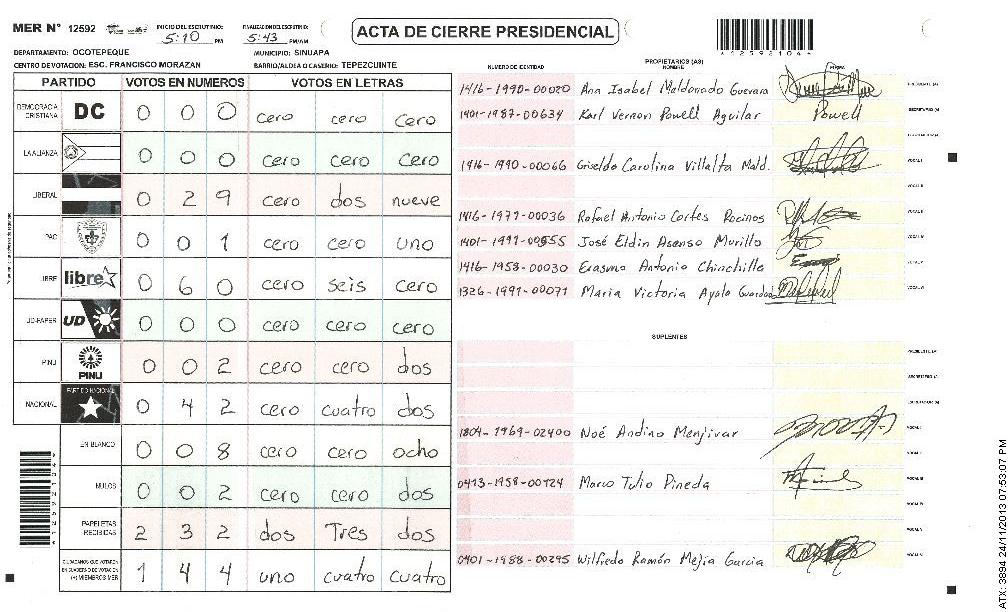 MER N° 12592 INICIO DEL ESCRUTINIO: 5:10 PM FINALIZACION DEL ESCRUTINIO: 5:43 PM/AM
ACTA DE CIERRE PRESIDENCIAL
DEPARTAMENTO: OCOTEPEQUE MUNICIPIO: SINUAPA
CENTRO DE VOTACION: ESC. FRANCISCO MORAZAN BARRIO/ALDEA O CASERIO: TEPEZCUINTE
PARTIDO VOTOS EN NUMEROS VOTOS EN LETRAS
DEMOCRACIA CRISTIANA DC 0 0 0 cero cero cero
LA ALIANZA 0 0 0 cero cero cero
LIBERAL 0 2 9 cero dos nueve
PAC 0 0 1 cero cero uno
LIBRE libre 0 6 0 cero seis cero
UD-FAPER UD 0 0 0 cero cero cero
PINU PINU 0 0 2 cero cero dos
NACIONAL PARTIDO NACIONAL 0 4 2 cero cuatro dos
EN BLANCO 0 0 8 cero cero ocho
NULOS 0 0 2 cero cero dos
PAPELETAS RECIBIDAS 2 3 2 dos Tres dos
CIUDADANOS QUE VOTARON EN CUADERNO DE VOTACION (+) MIEMBROS MER 1 4 4 uno cuatro cuatro
*12592104*
NUMERO DE IDENTIDAD PROPIETARIOS (AS) NOMBRE FIRMA
1416-1990-00020 Ana Isabel Maldonado Guevara PRESIDENTE (A)
1401-1987-00634 Karl Vernon Powell Aguilar Powell SECRETARIO (A)
1416-1990-00066 Griselda Carolina Villalta Mald. VOCAL I
VOCAL II
1416-1977-00036 Rafael Antonio Cortes Rocinos
José Eldin Asenso Murillo
1416-1958-00030 Erasmo Antonio Chinchilla
1326-1991-00071 Maria Victoria Ayala
SUPLENTES
PRESIDENTE (A)
SECRETARIO (A)
1804-1969-02400 Noé Andino Menjivar VOCAL I
0413-1958-00124 Marco Tulio Pineda
0401-1988-00295 Wilfredo Ramón Mejia Garcia
ATX: 3894 24/11/2013 07:53:07 PM